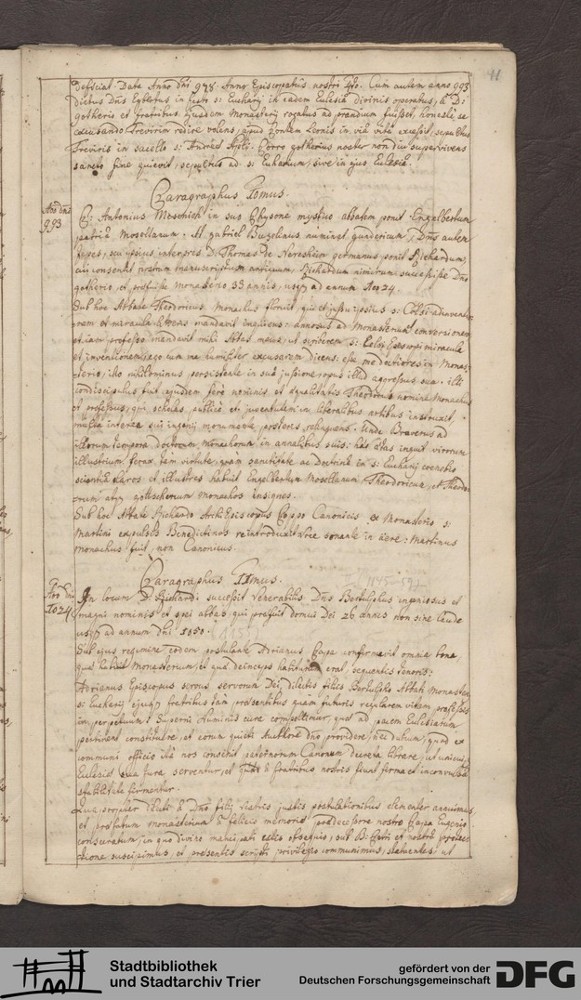 11
deficiat. Data Anno dni 978. Anno Episcopatus nostri 4to. Cum autem anno 993
dictus Dns Egbertus in festo S: Eucharij in eadem Ecclesia divinis operatus, à D:
gotherio et fratribus ejusdem Monasterij rogatus ad prandium fuisset, honeste se
excusando Trevirim redire volens, apud fontem Leonis in via vita excessit, sepultus
Treviris in sacello S: Andreæ Apli. Porro gotherius noster non diu supervivens
sancto fine quievit, sepultus ad S: Eucharium, sive in ejus Ecclesia.
Paragraphus Imus.
Ano dni
993
Antonius in suo mystico abbatem ponit Engelbertum
patria Mosellanum. At gabriel Bucelinus nominat gundericum, Dnus autem
interpres D: Thomas de germanus ponit Richardum,
cui consentit nostrum manuscriptum antiquum, Richardum nimirum successisse Dno
gotherio, et præfuisse monasterio 33 annis, usque ad annum 1024.
Sub hoc Abbate Theodoricus Monachus floruit, qui et jussu ipsius S: Celsi inventio
nem et miracula litteris mandavit
etiam professo mandavit mihi Abbas meus, ut scriberem S: Celsi Episcopi miracula
et inventionem, ego cum me humiliter excusarem dicens: esse me doctiores in Monas
terio, illo nihilominus persistente in sua jussione opus illud agressus sum. illi
condiscipulus fuit ejusdem fere nominis et qualitatis Theodorus nomine Monachus
et professus, qui scholas publice et juventutem in liberalibus artibus instruxit,
multa interea sui ingenij monumenta posteris relinquens. Unde Browerus ad
illorum tempora doctorum Monachorum in annalibus suis: hæc ætas inquit virorum
illustrium ferax, tam virtute, quam sanctitate ac Doctrina in S: Eucharij coenobio
scientia claros et illustres habuit Engelbertum Mosellanum Theodoricum, et Theodo
rum atque gotscherum monachos insignes.
Sub hoc Abbate Richardo ArchiEpiscopus Poppo Canonicis ex Monasterio S:
Martini expulsis Benedictinos reintroduxit, voce sonante in aere: Martinus
monachus fuit, non Canonicus.
Paragraphus IImus.
1145-59?
Ano dni
1024
In locum D: Richardi successit Venerabilis Dns Bertulphus ingeniosus et
magni nominis et spei abbas, qui præfuit domui Dei 26 annis non sine laude
usque ad annum dni 1050.
Sub ejus regimine eodem postulante Adrianus Papa confirmavit omnia bona
quæ habuit Monasterium, et quæ deinceps habiturum erat, sequentis tenoris:
Adrianus Episcopus servus servorum Dei, dilectis filijs Bertulpho Abbati Monasterij
S: Eucharij ejusque fratribus tam præsentibus quam futuris regularem vitam professis
in perpetuum: Superni luminis cura compellimur, quæ ad pacem Ecclesiarum
pertinent constituere, et eorum quieti Authore dno providere, nec dubium, quod ex
communi officio ita nos convenit patronorum Canonum decreta librare, ut unicuique
Ecclesiæ sua jura serventur, et quæ à fratribus nostris fiunt firma et inconvulsa
stabilitate firmentur.
Quapropter dilecti in Dno filij vestris justis postulationibus clementer annuimus
et præfatum monasterium à felicis memoriæ prædecessore nostro Papa Eugenio
consecratum, in quo divino mancipati estis obsequio, sub B: Petri et nostra protec
tione suscipimus, et præsentis scripti privilegio communimus, statuentes: ut
Stadtbibliothek
und Stadtarchiv Trier
gefördert von der
Deutschen Forschungsgemeinschaft
DFG